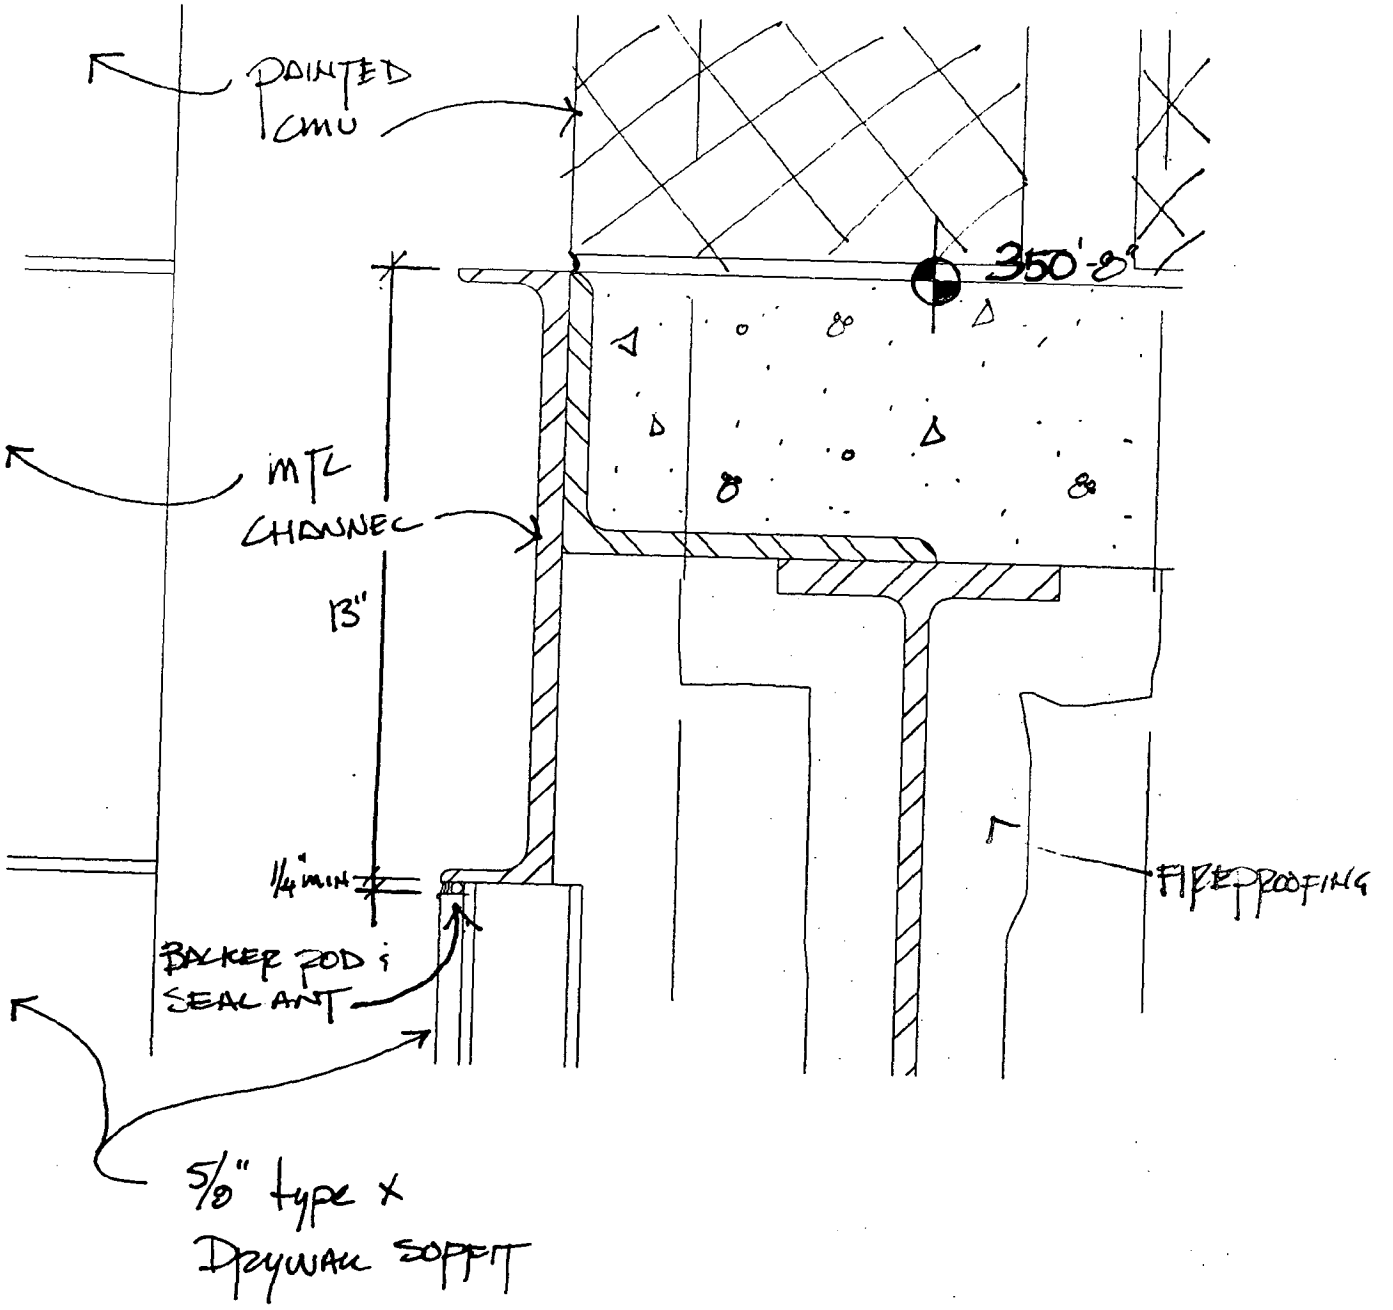 PAINTED
CMU
350'-8"
MTL
CHANNEL
13"
1/4" MIN
FIREPROOFING
BACKER ROD &
SEALANT
5/8" type x
DRYWALL SOFFIT